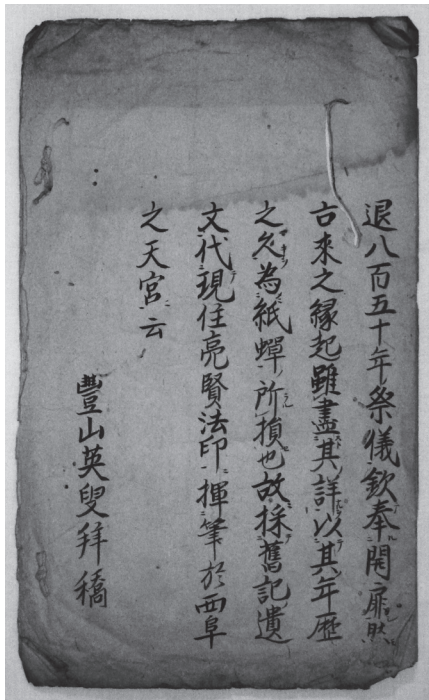 退八百五十年祭儀欽奉開扉然
古来之縁起雖盡其詳以其年歴
之久為紙蟬所損也故採舊記遺
文代現住亮賢法印揮筆於西阜
之天宮云
豊山英叟拜稿